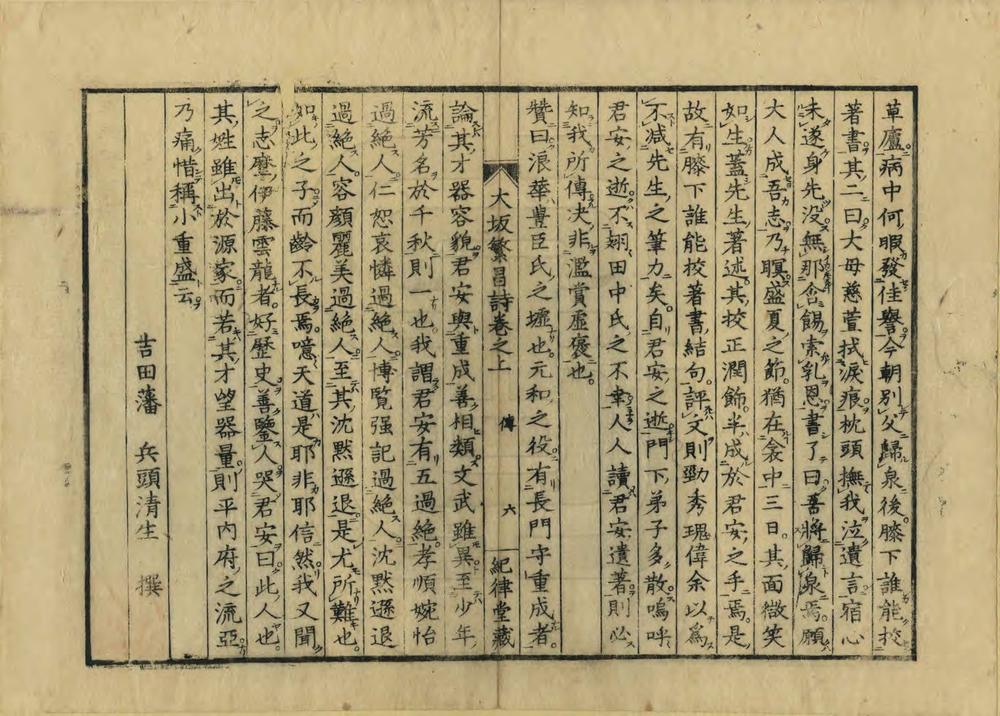 草廬病中何暇發佳譽今朝別父歸泉後膝下誰能挍
著書其二曰大母慈萱拭淚痕枕頭撫我泣遺言宿心
未遂身先沒無那含飴索乳恩書了曰吾將歸泉焉願
大人成吾志乃瞑盛夏之節猶在衾中三日其面微笑
如生蓋先生著述其挍正潤飾半成於君安之手焉是
故有膝下誰能挍著書結句評文則勁秀瑰偉余以爲
不减先生之筆力矣自君安之逝門下弟子多散嗚呼
君安之逝不翅田中氏之不幸人人讀君安遺著則必
知我所傳决非濫賞虛褒也
贊曰浪華豊臣氏之墟也元和之役有長門守重成者
大坂繁昌詩卷之上 傳 六 紀律堂藏
論其才器容貌君安與重成善相類文武雖異至少年
流芳名於千秋則一也我謂君安有五過絶孝順婉怡
過絶人仁恕哀憐過絶人博覽强記過絶人沈默遜退
過絶人容顏麗美過絶人至其沈默遜退是尤所難也
如此之子而齡不長焉噫天道是耶非耶信然我又聞
之志摩伊藤雲龍者好歷史善鑒人哭君安曰此人也
其姓雖出於源家而若其才望器量則平內府之流亞
乃痛惜稱小重盛云
吉田藩 兵頭清生 撰